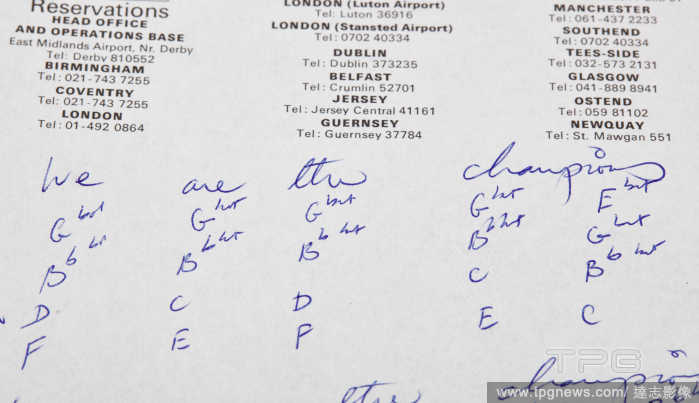 Reservations
HEAD OFFICE
AND OPERATIONS BASE
East Midlands Airport, Nr. Derby
Tel: Derby 810552
BIRMINGHAM
Tel: 021-743 7255
COVENTRY
Tel: 021-743 7255
LONDON
Tel: 01-492 0864
LONDON (Luton Airport)
Tel: Luton 36916
LONDON (Stansted Airport)
Tel: 0702 40334
DUBLIN
Tel: Dublin 373235
BELFAST
Tel: Crumlin 52701
JERSEY
Tel: Jersey Central 41161
GUERNSEY
Tel: Guernsey 37784
MANCHESTER
Tel: 061-437 2233
SOUTHEND
Tel: 0702 40334
TEES-SIDE
Tel: 032-573 2131
GLASGOW
Tel: 041-889 8941
OSTEND
Tel: 059 81102
NEWQUAY
Tel: St. Mawgan 551
We are the champions
G G G G E
B B B B G
D C D C B
F E F E C
the champions
TPG
www.tpgnews.com / 達志影像